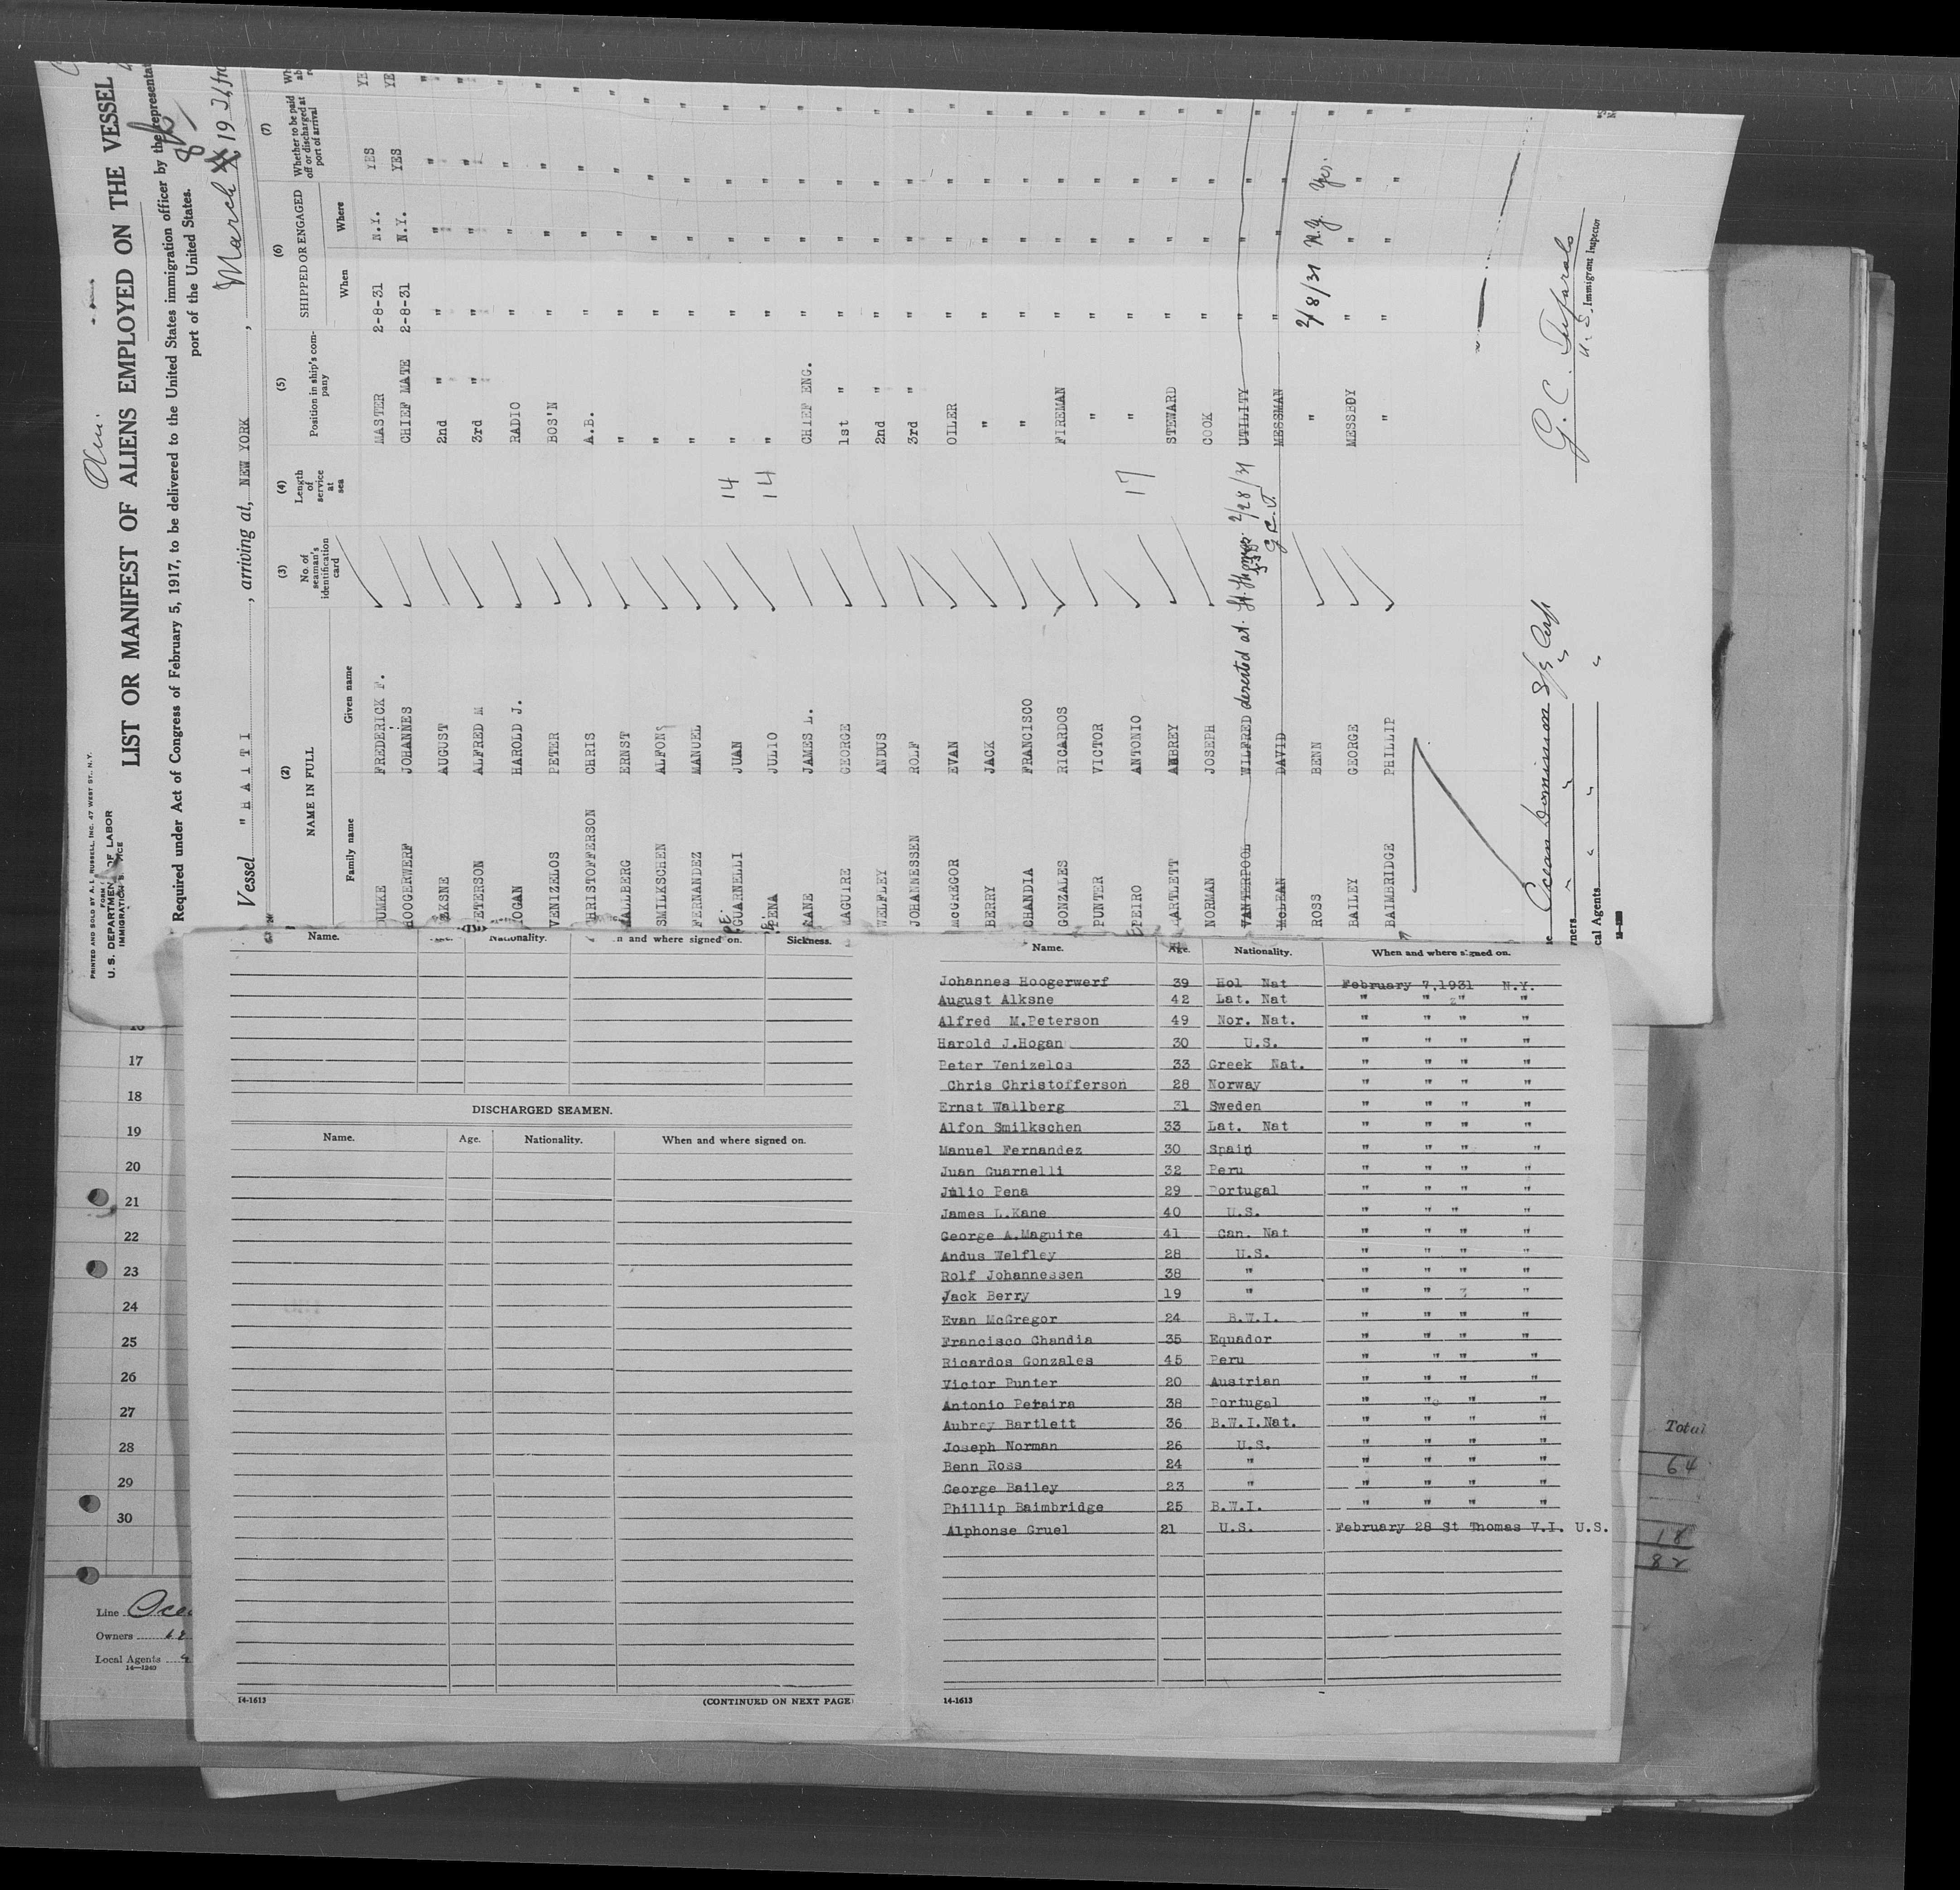 PRINTED AND SOLD BY A. L. RUSSELL, INC. 47 WEST ST., N.Y.
U. S. DEPARTMENT OF LABOR
LIST OR MANIFEST OF ALIENS EMPLOYED ON THE VESSEL
Required under Act of Congress of February 5, 1917, to be delivered to the United States immigration officer by the representat
port of the United States.
Vessel "HAITI", arriving at, NEW YORK, March 19 31, fro
(2) (3) (4) (5) (6) (7)
NAME IN FULL
No. of seaman's identification card
Length of service at sea
Position in ship's company
SHIPPED OR ENGAGED
Whether to be paid off or discharged at port of arrival
Family name Given name When Where
DUMKE FREDERICK F. MASTER 2-8-31 N.Y. YES YE
HOOGERWERF JOHANNES CHIEF MATE 2-8-31 N.Y. YES YE
KSNE AUGUST 2nd " " " " "
PETERSON ALFRED M 3rd " " " " "
HOGAN HAROLD J. RADIO " " " "
VENIZELOS PETER BOS'N " " " "
CHRISTOFFERSON CHRIS A.B. " " " "
WALLBERG ERNST " " " " "
SMILKSCHEN ALFON " " " " "
FERNANDEZ MANUEL " " " " "
GUARNELLI JUAN 14 " " " " "
PENA JULIO 14 " " " " "
KANE JAMES L. CHIEF ENG. " " " "
MAGUIRE GEORGE 1st " " " " "
WELFLEY ANDUS 2nd " " " " "
JOHANNESSEN ROLF 3rd " " " " "
McGREGOR EVAN OILER " " " "
BERRY JACK " " " " "
CHANDIA FRANCISCO " " " " "
GONZALES RICARDOS FIREMAN " " " "
PUNTER VICTOR " " " " "
EIRO ANTONIO 17 " " " " "
ARTLETT AUBREY STEWARD " " " "
NORMAN JOSEPH COOK " " " "
VANTERPOOL WILFRED deserted at St. Thomas 2/28/31 UTILITY " " " "
McLEAN DAVID G.C.T. MESSMAN " " " "
ROSS BENN " 2/8/31 N.Y. Yes.
BAILEY GEORGE MESSBOY " " "
BAIMBRIDGE PHILLIP " " " " "
Ocean Dominion S/S Corp
ners " " "
cal Agents " " "
G. C.
U. S. Immigrant Inspector
Name. Nationality. n and where signed on. Sickness.
DISCHARGED SEAMEN.
Name. Age. Nationality. When and where signed on.
14-1613 (CONTINUED ON NEXT PAGE)
Name. Age. Nationality. When and where signed on.
Johannes Hoogerwerf 39 Hol Nat February 7,1931 N.Y.
August Alksne 42 Lat. Nat " " " "
Alfred M.Peterson 49 Nor. Nat. " " " "
Harold J.Hogan 30 U.S. " " " "
Peter Venizelos 33 Greek Nat. " " " "
Chris Christofferson 28 Norway " " " "
Ernst Wallberg 31 Sweden " " " "
Alfon Smilkschen 33 Lat. Nat " " " "
Manuel Fernandez 30 Spain " " " "
Juan Guarnelli 32 Peru " " " "
Julio Pena 29 Portugal " " " "
James L.Kane 40 U.S. " " " "
George A.Maguire 41 Can. Nat " " " "
Andus Welfley 28 U.S. " " " "
Rolf Johannessen 38 " " " " "
Jack Berry 19 " " " "
Evan McGregor 24 B.W.I. " " " "
Francisco Chandia 35 Equador " " " "
Ricardos Gonzales 45 Peru " " " "
Victor Punter 20 Austrian " " " "
Antonio Peraira 38 Portugal " " " "
Aubrey Bartlett 36 B.W.I.Nat. " " " "
Joseph Norman 26 U.S. " " " "
Benn Ross 24 " " " " "
George Bailey 23 " " " " "
Phillip Baimbridge 25 B.W.I. " " " "
Alphonse Gruel 21 U.S. February 28 St Thomas V.I. U.S.
14-1613
17
18
19
20
21
22
23
24
25
26
27
28
29
30
Line Ocea
Owners
Local Agents
14-1240
Total
64
18
82